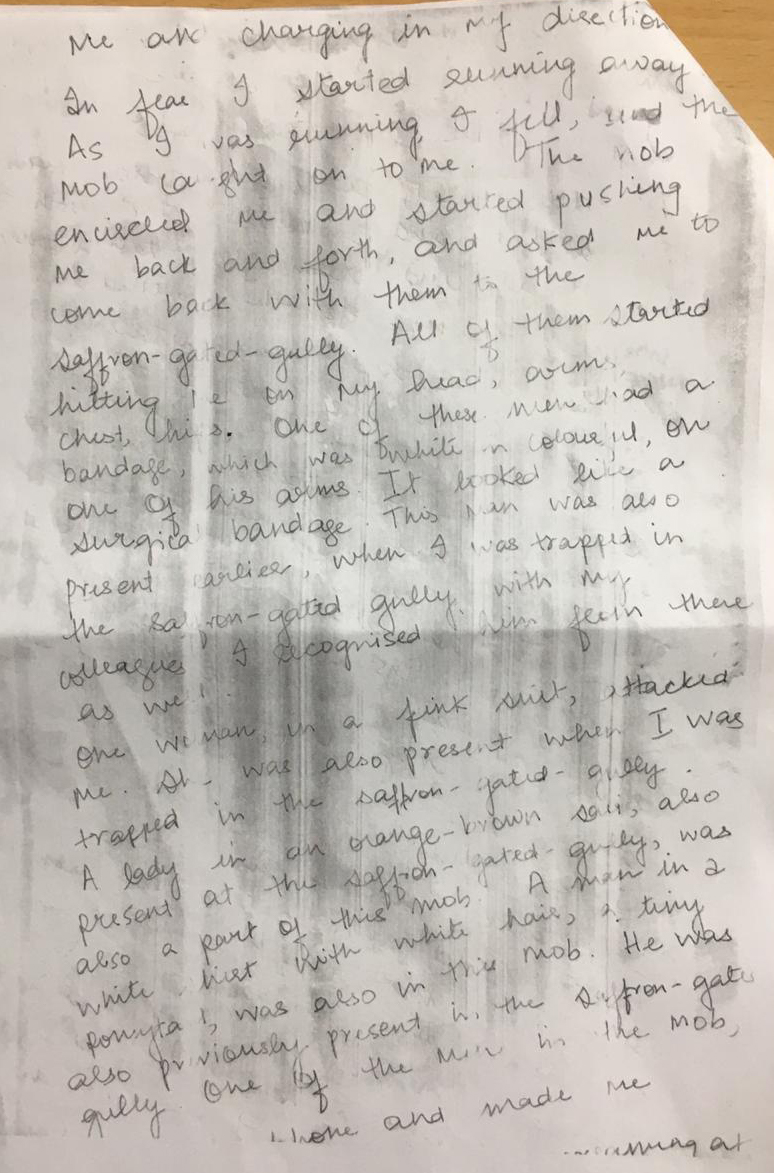 Me and charging in my direction
In fear I started running away
As I was running, I fell, and the
mob caught on to me. The mob
encircled me and started pushing
me back and forth, and asked me to
come back with them to the
saffron-gated-gully. All of them started
hitting me on my head, arms,
chest, hips. One of these men had a
bandage, which was white in colour, on
one of his arms. It looked like a
surgical bandage. This man was also
present earlier, when I was trapped in
the saffron-gated gully, with my
colleagues I recognised him from there
as well.
One woman, in a pink suit, attacked
me. She was also present when I was
trapped in the saffron-gated-gully.
A lady in an orange-brown sari, also
present at the saffron-gated-gully, was
also a part of this mob. A man in a
white shirt with white hair, a tiny
ponytail, was also in this mob. He was
also previously present in the saffron-gate
gully One of the men in the mob,
and made me
at